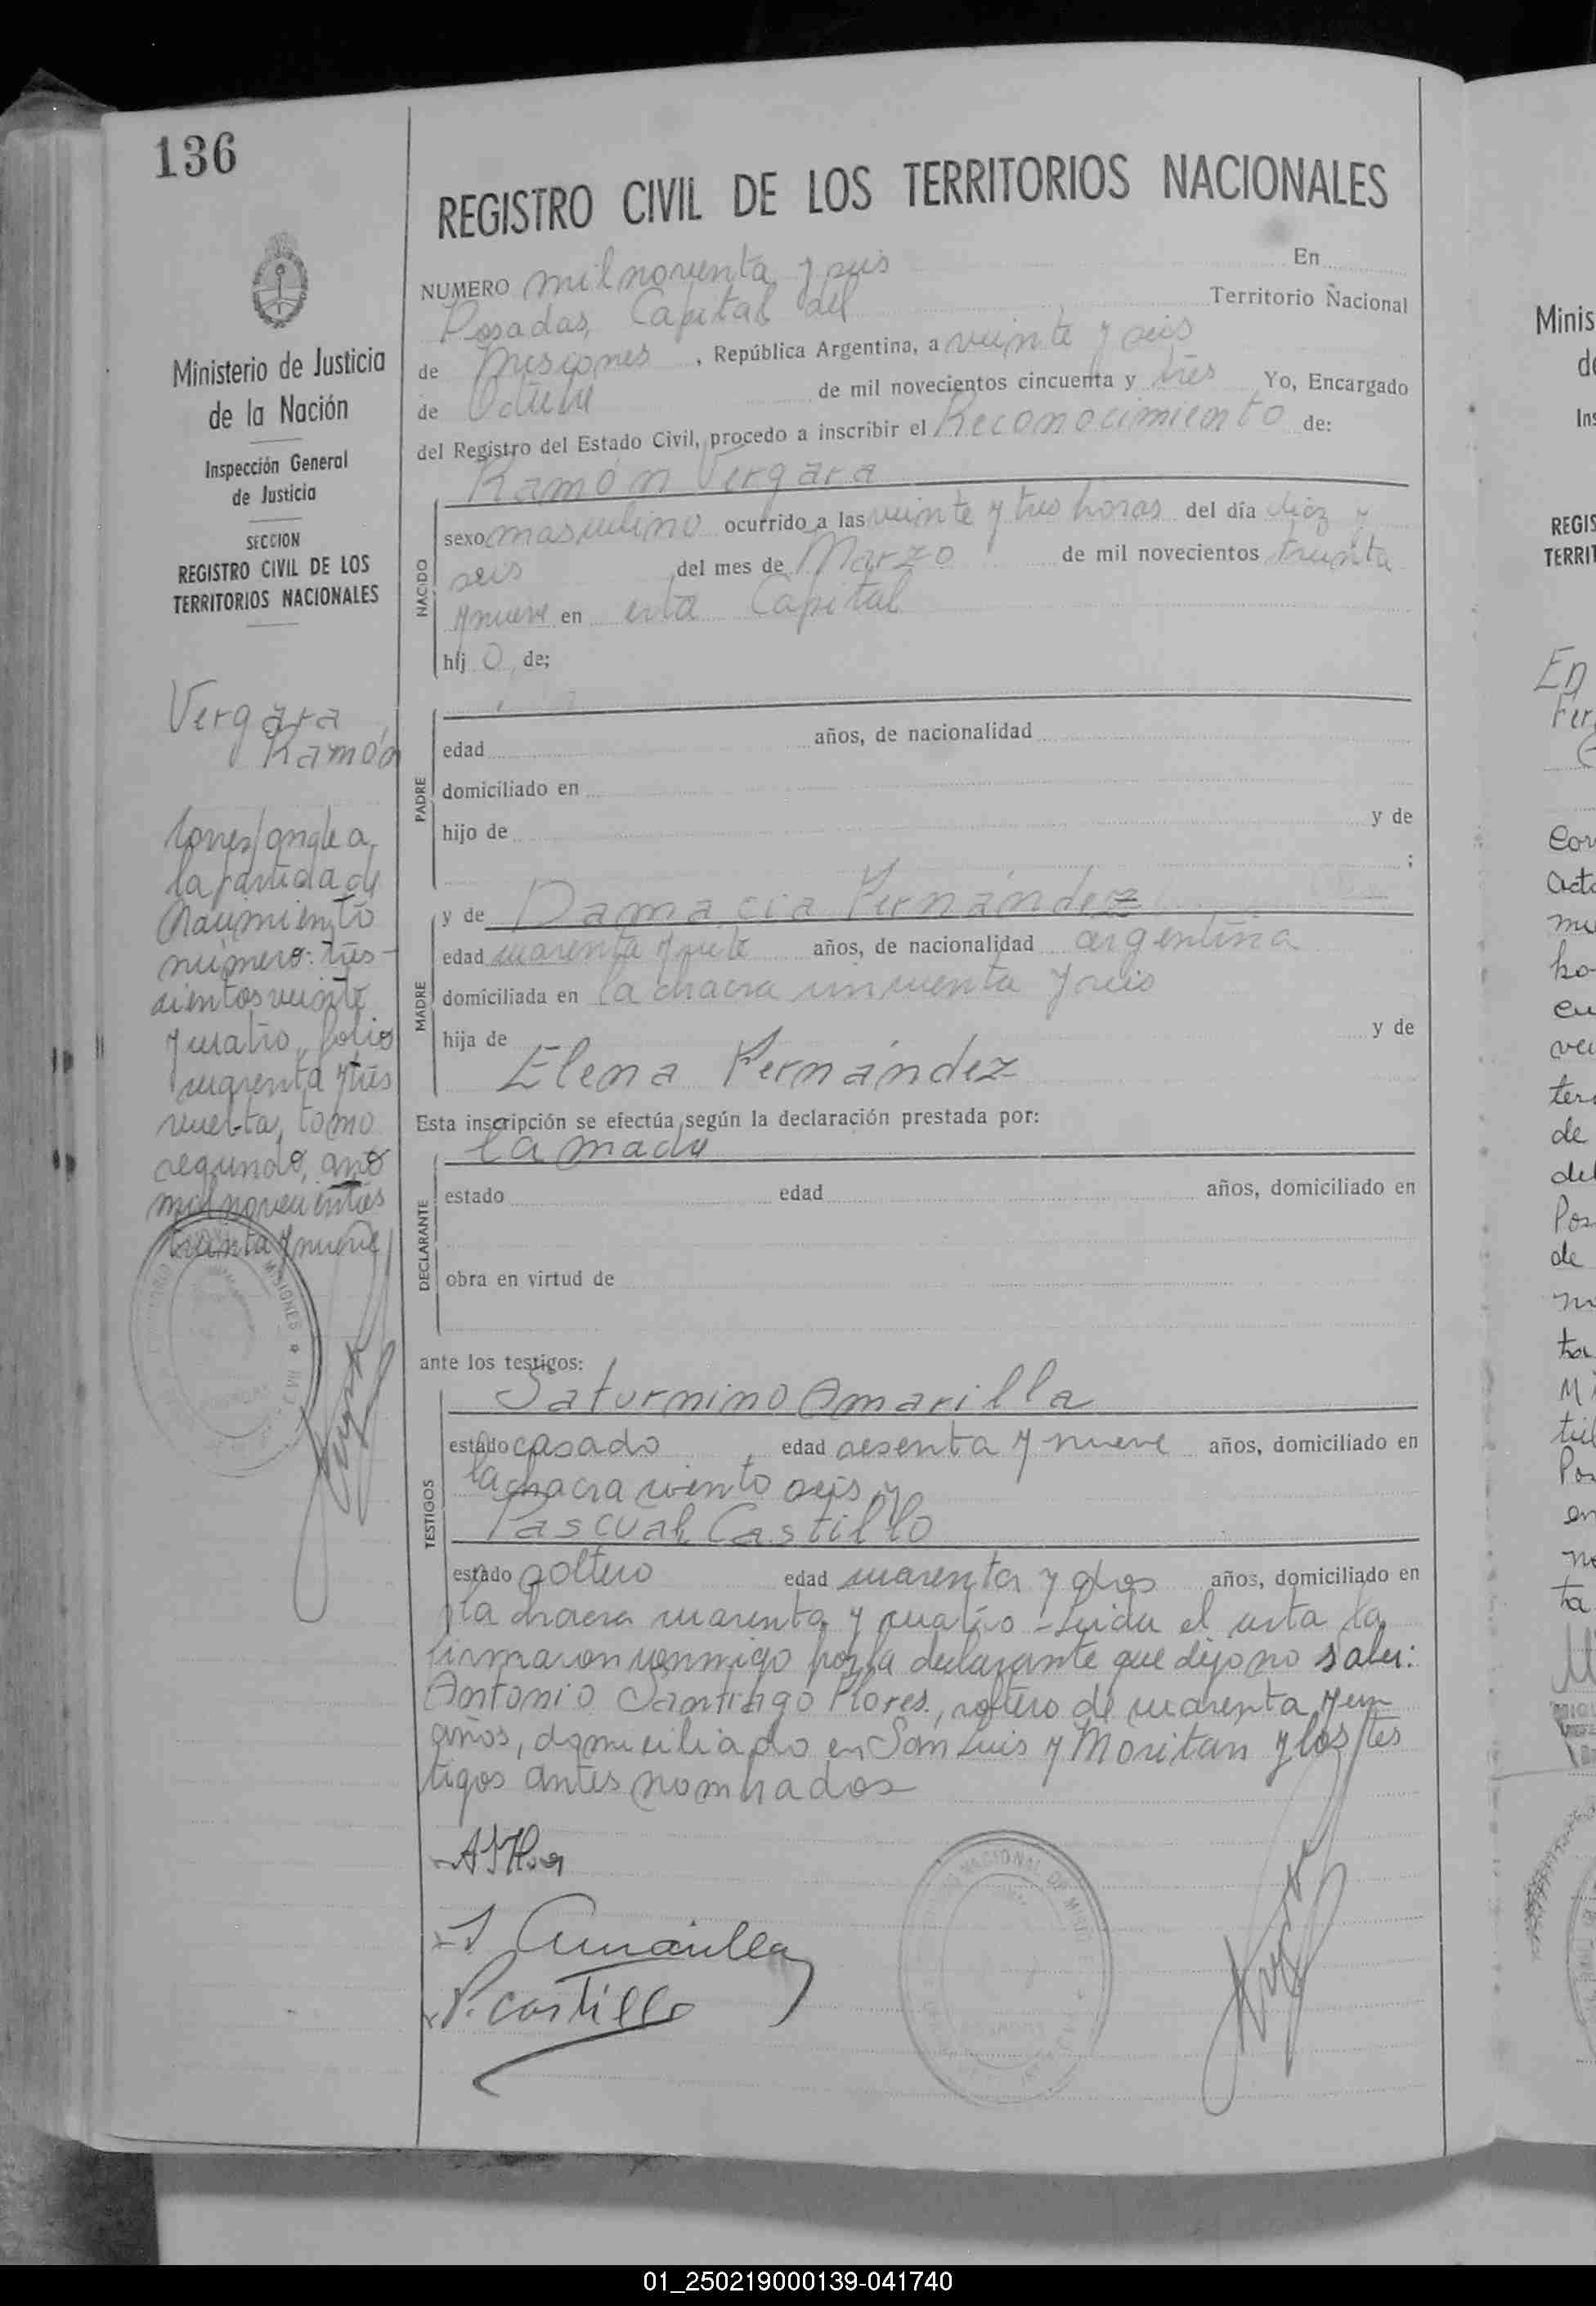 136
REGISTRO CIVIL DE LOS TERRITORIOS NACIONALES
Ministerio de Justicia
de la Nación
Inspección General
de Justicia
SECCION
REGISTRO CIVIL DE LOS
TERRITORIOS NACIONALES
Vergara
Ramón
Corresponde a
la partida de
Nacimiento
número: tres-
cientos veinte
y cuatro, folio
cuarenta y tres
vuelta, tomo
segundo, año
mil novecientos
treinta y nueve
NUMERO mil noventa y seis En
Posadas, Capital del Territorio Nacional
de Misiones, República Argentina, a veinte y seis
de Octubre de mil novecientos cincuenta y tres Yo, Encargado
del Registro del Estado Civil, procedo a inscribir el Reconocimiento de:
Ramón Vergara
NACIDO
sexo masculino ocurrido a las veinte y tres horas del día diez y
seis del mes de Marzo de mil novecientos treinta
y nueve en esta Capital
hij o de;
PADRE
edad años, de nacionalidad
domiciliado en
hijo de y de
;
MADRE
y de Damacia Fernández
edad cuarenta y siete años, de nacionalidad argentina
domiciliada en la chacra cincuenta y seis
hija de y de
Elena Fernández
Esta inscripción se efectúa según la declaración prestada por:
la madre
DECLARANTE
estado edad años, domiciliado en
obra en virtud de
ante los testigos:
TESTIGOS
Saturnino Amarilla
estado casado, edad sesenta y nueve años, domiciliado en
la chacra ciento seis y
Pascual Castillo
estado soltero edad cuarenta y dos años, domiciliado en
la chacra cuarenta y cuatro - Leída el acta la
firmaron conmigo por la declarante que dijo no saber:
Antonio Santiago Flores, soltero de cuarenta y un
años, domiciliado en San Luis y Moritan y los tes
tigos antes nombrados
S Amarilla
P. Castillo
01_250219000139-041740